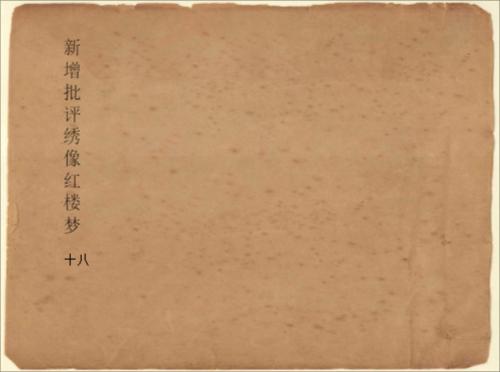 新增批评绣像红楼梦
十八